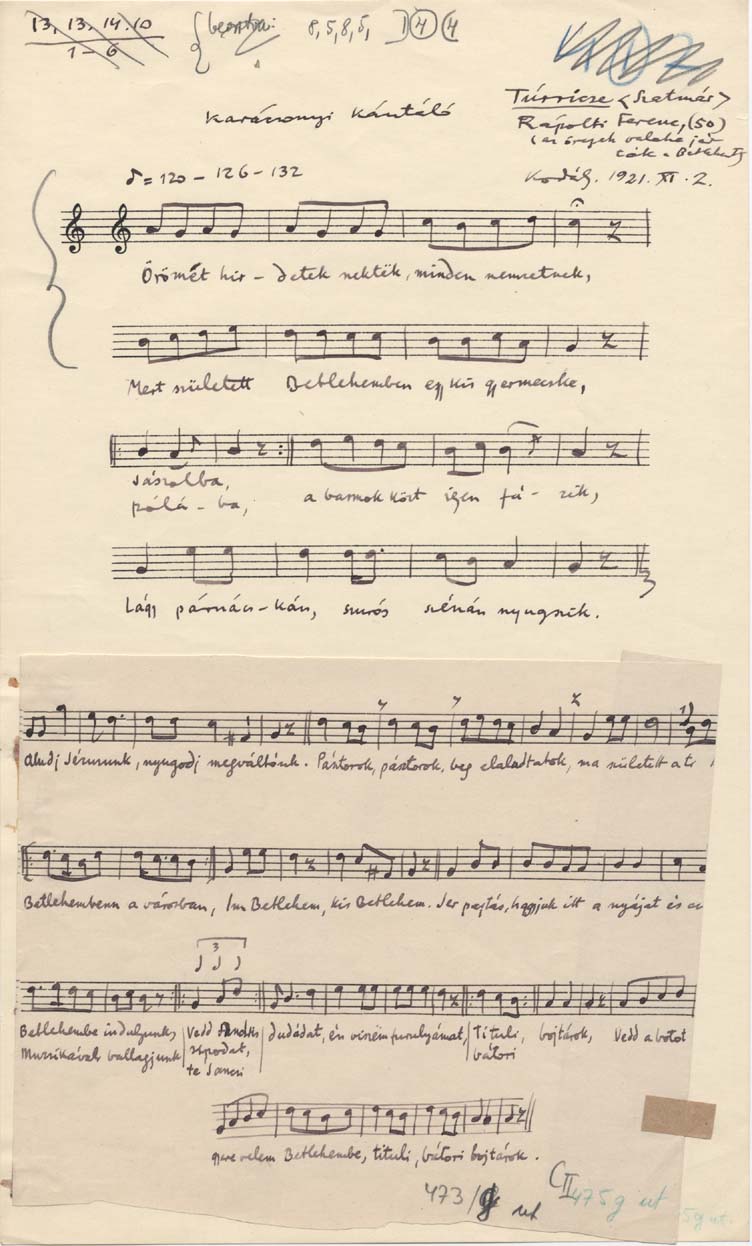 13, 13, 14.10
1 – 6
beosztva: 8,5,8,5,
4 4
Túrricse <Szatmár>
Karácsonyi Kántáló
Rápolti Ferenc, (50)
(az öregek valaha jár
ták a Betlehemet)
Kodály. 1921. XI. 2.
= 120 – 126 – 132
Örömet hir – detek nektek, minden nemzetnek,
Mert született Betlehemben egy kis gyermecske,
Jászolba,
pólá – ba, a barmok közt igen fá – zik,
Lágy párnács – kán, szurós szénán nyugszik.
Aludj Jézusunk, nyugodj megváltónk. Pásztorok, pásztorok, beg elaludtatok, ma született a te
Betlehembenn a városban, Im Betlehem, kis Betlehem. Jer pajtás, hagyjuk itt a nyájat és a
3
Betlehembe induljunk, Vedd dudádat, én viszem furulyámat, Tituli, bojtárok, Vedd a botot
Muzsikával ballagjunk sípodat, bátori
te Jancsi
gyere velem Betlehembe, tituli, bátori bojtárok.
473/g ut
C II 475g ut
5g ut.